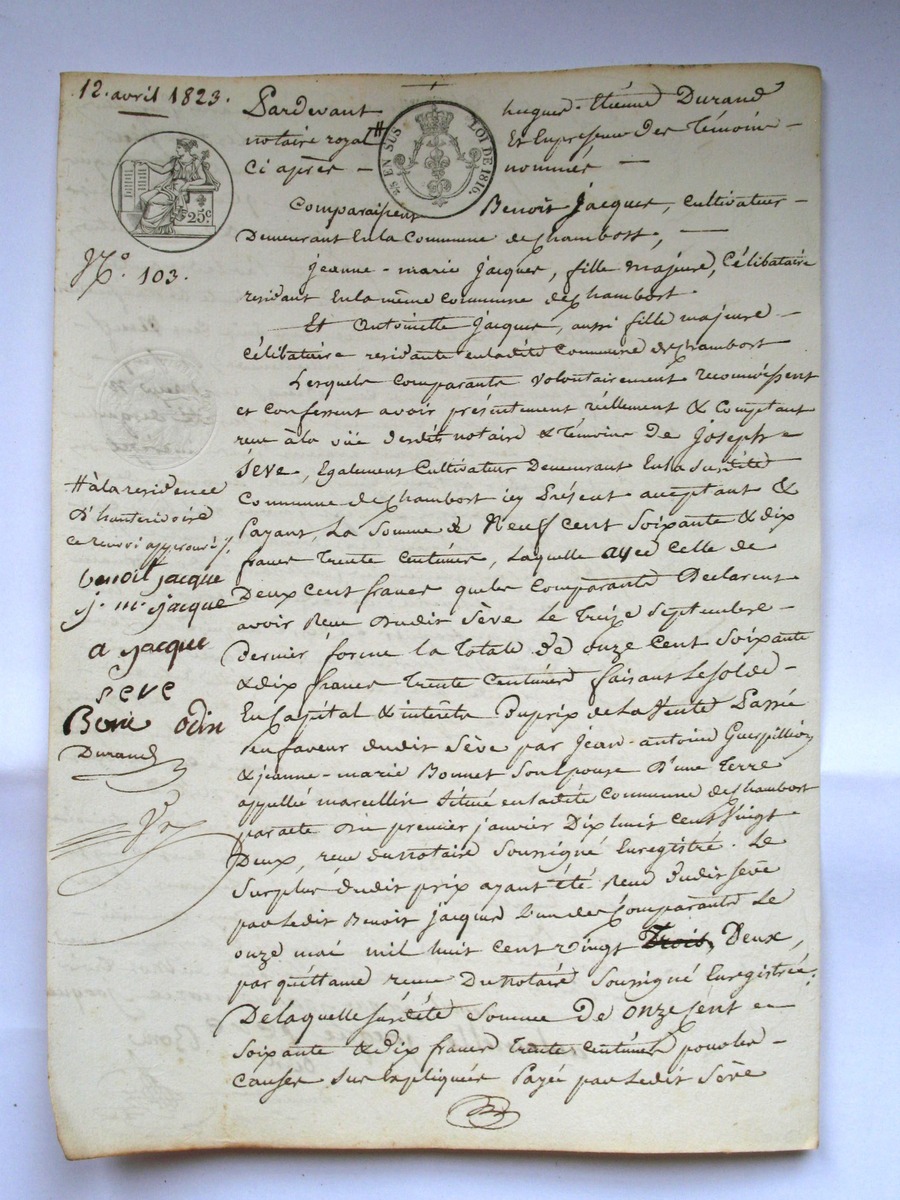 12. avril 1823.
Pardevant hugues-Etienne Durand
notaire royal # Et Enpresence des Témoins –
Ci après – nommés –
25 EN SUS
LOI DE 1816.
25c
No. 103.
Comparaissent Benoît Jacques, Cultivateur –
Demeurant En la Commune de Chambost, –
Jeanne-marie Jacques, fille majeure, Célibataire
residant En la même Commune de Chambost.
– Et Antoinette Jacques, aussi fille majeure –
Célibataire residante en ladite Commune de Chambost
Lesquels Comparants Volontairement reconnoissent
et Confessent avoir présentement réellement & Comptant
reçu à la vüe desdits notaire & témoins De Joseph –
Sève, Egalement Cultivateur Demeurant En la Susdite
Commune de Chambost icy Présent acceptant &
Payant, La Somme de Neuf cent Soixante & dix
francs Trente Centimes, Laquelle avec Celle de
Deux Cent francs que les Comparants Declarent
avoir Reçu dudit Sève Le Treize Septembre –
Dernier forme la Totale de onze Cent Soixante
& dix francs Trente Centimes faisant Le Solde –
En Capital & interets Du prix de La Vente Passée
En faveur dudit Sève par Jean-antoine Guerpillion
& jeanne-marie Bonnet Son Epouse D'une Terre
appellée marcellin Située en ladite Commune de Chambost
par acte du premier janvier Dix huit Cent Vingt
Deux, reçu du Notaire Soussigné Enregistré. Le
Surplus dudit prix ayant été Reçu dudit Sève
par Ledit Benoit Jacques L'un des Comparants Le
onze mai mil huit cent vingt Trois, Deux,
par quittance reçue Du Notaire Soussigné Enregistrée.
De laquelle Susdite Somme De onze Cent
Soixante & dix francs trente Centimes pour les –
Causes Sus Expliquées Payée par Ledit Sève
# à la residence
D'hauterivoire
Ce renvoi approuvé
benoit jacque
j. m. jacque
a jacque
seve
Odin
Durand